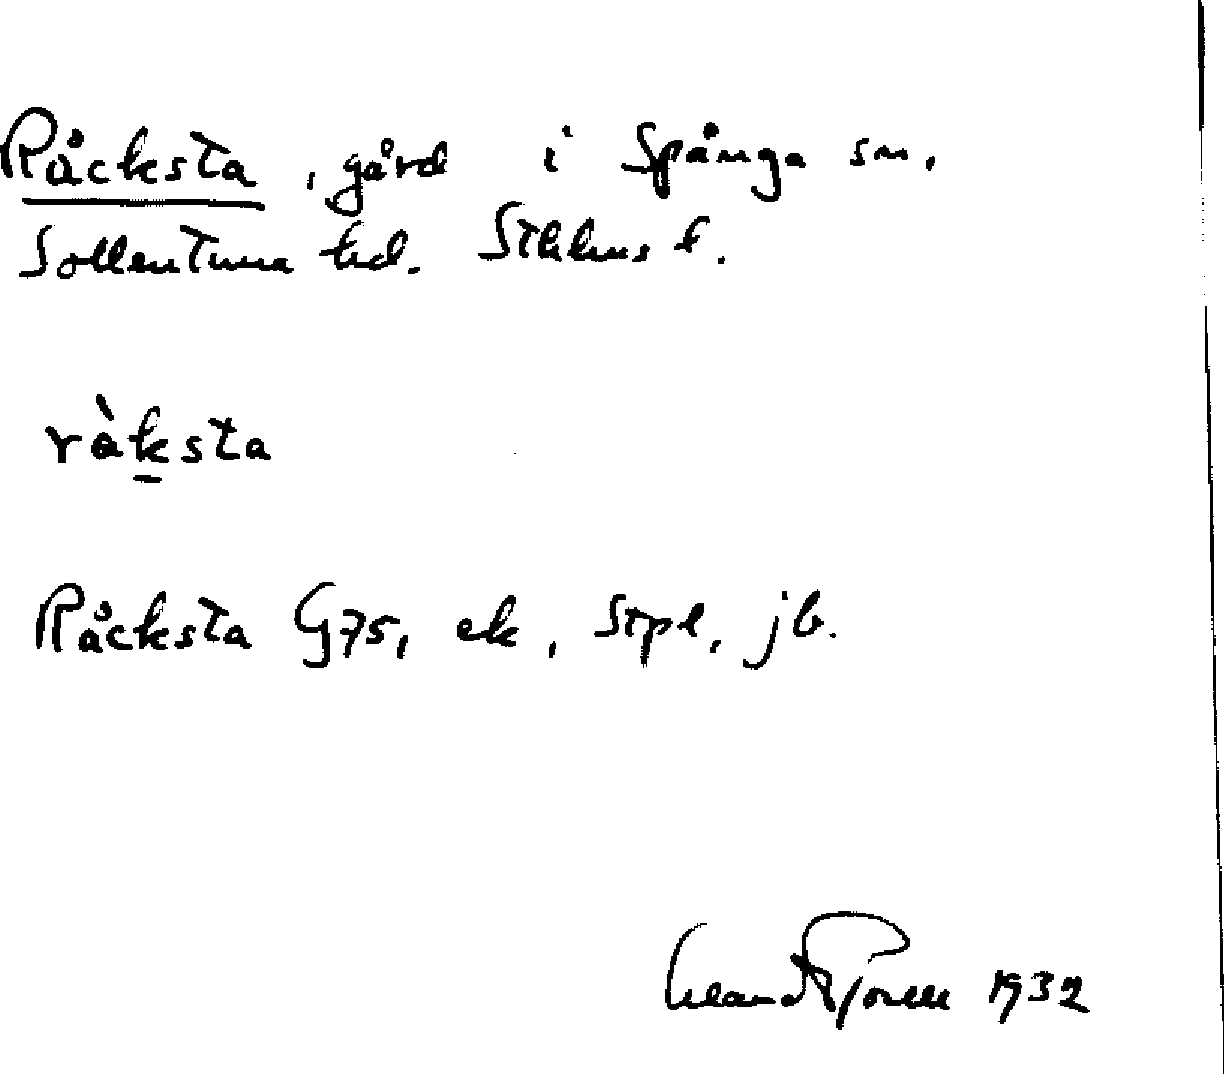 Råcksta, gård i Spånga sn.
Sollentuna hd. Sthlms l.
ràksta
Råcksta G75, ek, Stpl, jb.
1932